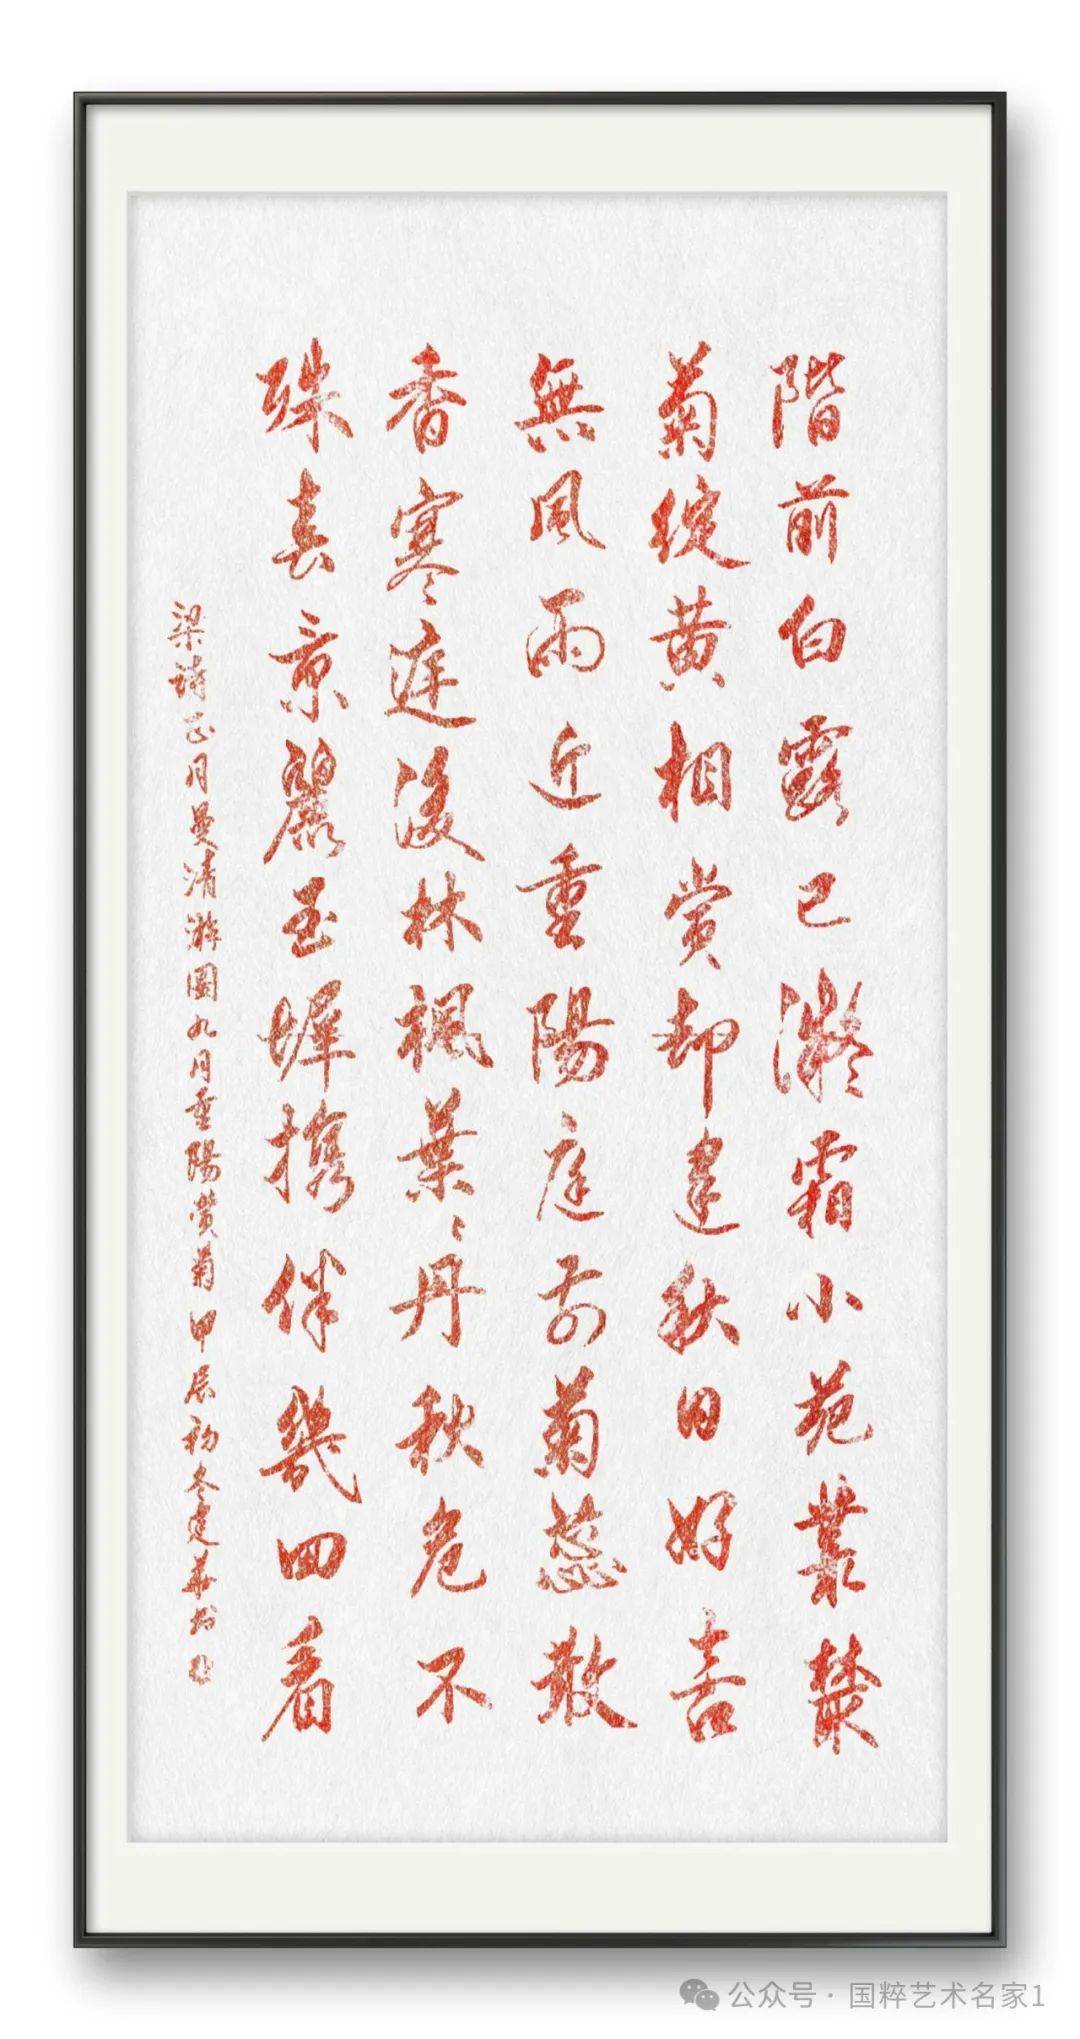 階前白露已凝霜小苑叢叢
菊綻黃相賞却逢秋日好喜
無風雨近重陽庭前菊蕊散
香寒庭後林楓葉〻丹秋色不
殊春景麗玉墀攜伴幾回看
梁詩正月曼清游圖九月重陽賞菊甲辰初冬建華书
公众号·国粹艺术名家1